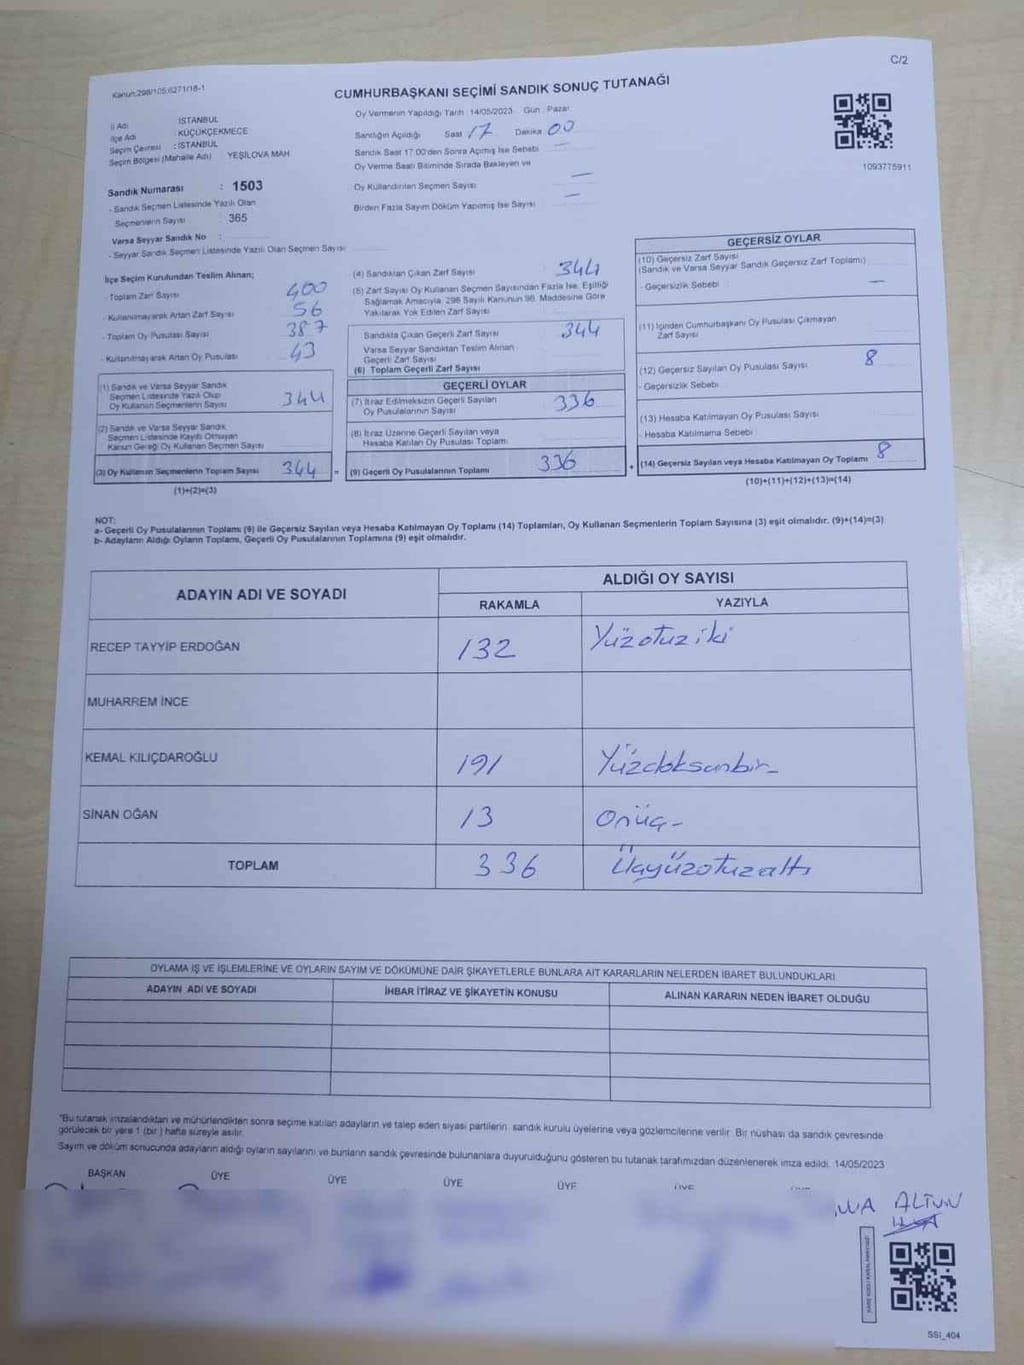 C/2
Kanun:298/105;6271/18-1
CUMHURBAŞKANI SEÇİMİ SANDIK SONUÇ TUTANAĞI
1093775911
İl Adı : İSTANBUL
İlçe Adı : KÜÇÜKÇEKMECE
Seçim Çevresi : İSTANBUL
Seçim Bölgesi (Mahalle Adı) YEŞİLOVA MAH.
Sandık Numarası : 1503
- Sandık Seçmen Listesinde Yazılı Olan
Seçmenlerin Sayısı : 365
Varsa Seyyar Sandık No :
- Seyyar Sandık Seçmen Listesinde Yazılı Olan Seçmen Sayısı
Oy Vermenin Yapıldığı Tarih : 14/05/2023 Gün : Pazar
Sandığın Açıldığı Saat 17 Dakika 00
Sandık Saat 17.00'den Sonra Açımış İse Sebebi —
Oy Verme Saati Bitiminde Sırada Bekleyen ve
Oy Kullandırılan Seçmen Sayısı —
Birden Fazla Sayım Döküm Yapılmış İse Sayısı —
İlçe Seçim Kurulundan Teslim Alınan;
- Toplam Zarf Sayısı 400
- Kullanılmayarak Artan Zarf Sayısı 56
- Toplam Oy Pusulası Sayısı 387
- Kullanılmayarak Artan Oy Pusulası 43
(1) Sandık ve Varsa Seyyar Sandık
Seçmen Listesinde Yazılı Olup
Oy Kullanan Seçmenlerin Sayısı 344
(2) Sandık ve Varsa Seyyar Sandık
Seçmen Listesinde Kayıtlı Olmayan
Kanun Gereği Oy Kullanan Seçmen Sayısı
(3) Oy Kullanan Seçmenlerin Toplam Sayısı 344
(1)+(2)=(3)
(4) Sandıktan Çıkan Zarf Sayısı 344
(5) Zarf Sayısı Oy Kullanan Seçmen Sayısından Fazla İse, Eşitliği
Sağlamak Amacıyla, 298 Sayılı Kanunun 98. Maddesine Göre
Yakılarak Yok Edilen Zarf Sayısı
Sandıkta Çıkan Geçerli Zarf Sayısı 344
Varsa Seyyar Sandıktan Teslim Alınan
Geçerli Zarf Sayısı
(6) Toplam Geçerli Zarf Sayısı
GEÇERLİ OYLAR
(7) İtiraz Edilmeksizin Geçerli Sayılan
Oy Pusulalarının Sayısı 336
(8) İtiraz Üzerine Geçerli Sayılan veya
Hesaba Katılan Oy Pusulası Toplamı
= (9) Geçerli Oy Pusulalarının Toplamı 336 +
GEÇERSİZ OYLAR
(10) Geçersiz Zarf Sayısı
(Sandık ve Varsa Seyyar Sandık Geçersiz Zarf Toplamı)
- Geçersizlik Sebebi —
(11) İçinden Cumhurbaşkanı Oy Pusulası Çıkmayan
Zarf Sayısı
(12) Geçersiz Sayılan Oy Pusulası Sayısı 8
- Geçersizlik Sebebi
(13) Hesaba Katılmayan Oy Pusulası Sayısı
- Hesaba Katılmama Sebebi
(14) Geçersiz Sayılan veya Hesaba Katılmayan Oy Toplamı 8
(10)+(11)+(12)+(13)=(14)
NOT:
a- Geçerli Oy Pusulalarının Toplamı (9) ile Geçersiz Sayılan veya Hesaba Katılmayan Oy Toplamı (14) Toplamları, Oy Kullanan Seçmenlerin Toplam Sayısına (3) eşit olmalıdır. (9)+(14)=(3)
b- Adayların Aldığı Oyların Toplamı, Geçerli Oy Pusulalarının Toplamına (9) eşit olmalıdır.
ADAYIN ADI VE SOYADI ALDIĞI OY SAYISI
RAKAMLA YAZIYLA
RECEP TAYYİP ERDOĞAN 132 Yüzotuziki
MUHARREM İNCE
KEMAL KILIÇDAROĞLU 191 Yüzdoksanbir
SİNAN OĞAN 13 Onüç
TOPLAM 336 Üçyüzotuzaltı
OYLAMA İŞ VE İŞLEMLERİNE VE OYLARIN SAYIM VE DÖKÜMÜNE DAİR ŞİKAYETLERLE BUNLARA AİT KARARLARIN NELERDEN İBARET BULUNDUKLARI
ADAYIN ADI VE SOYADI İHBAR İTİRAZ VE ŞİKAYETİN KONUSU ALINAN KARARIN NEDEN İBARET OLDUĞU
*Bu tutanak imzalandıktan ve mühürlendikten sonra seçime katılan adayların ve talep eden siyasi partilerin sandık kurulu üyelerine veya gözlemcilerine verilir. Bir nüshası da sandık çevresinde
görülecek bir yere 1 (bir) hafta süreyle asılır.
Sayım ve döküm sonucunda adayların aldığı oyların sayılarını ve bunların sandık çevresinde bulunanlara duyurulduğunu gösteren bu tutanak tarafımızdan düzenlenerek imza edildi. 14/05/2023
BAŞKAN ÜYE ÜYE ÜYE ÜYE ÜYE
SSI_404